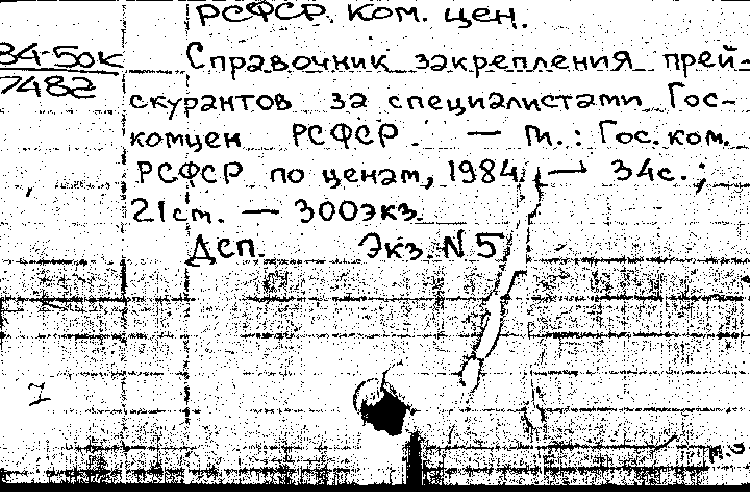 РСФСР. Ком. цен.
84-50к Справочник закрепления прей-
7482 скурантов за специалистами Гос-
комцен РСФСР. — М.: Гос. ком.
РСФСР по ценам, 1984. — 34с.;
21см. — 300экз.
Дсп. Экз. N 5